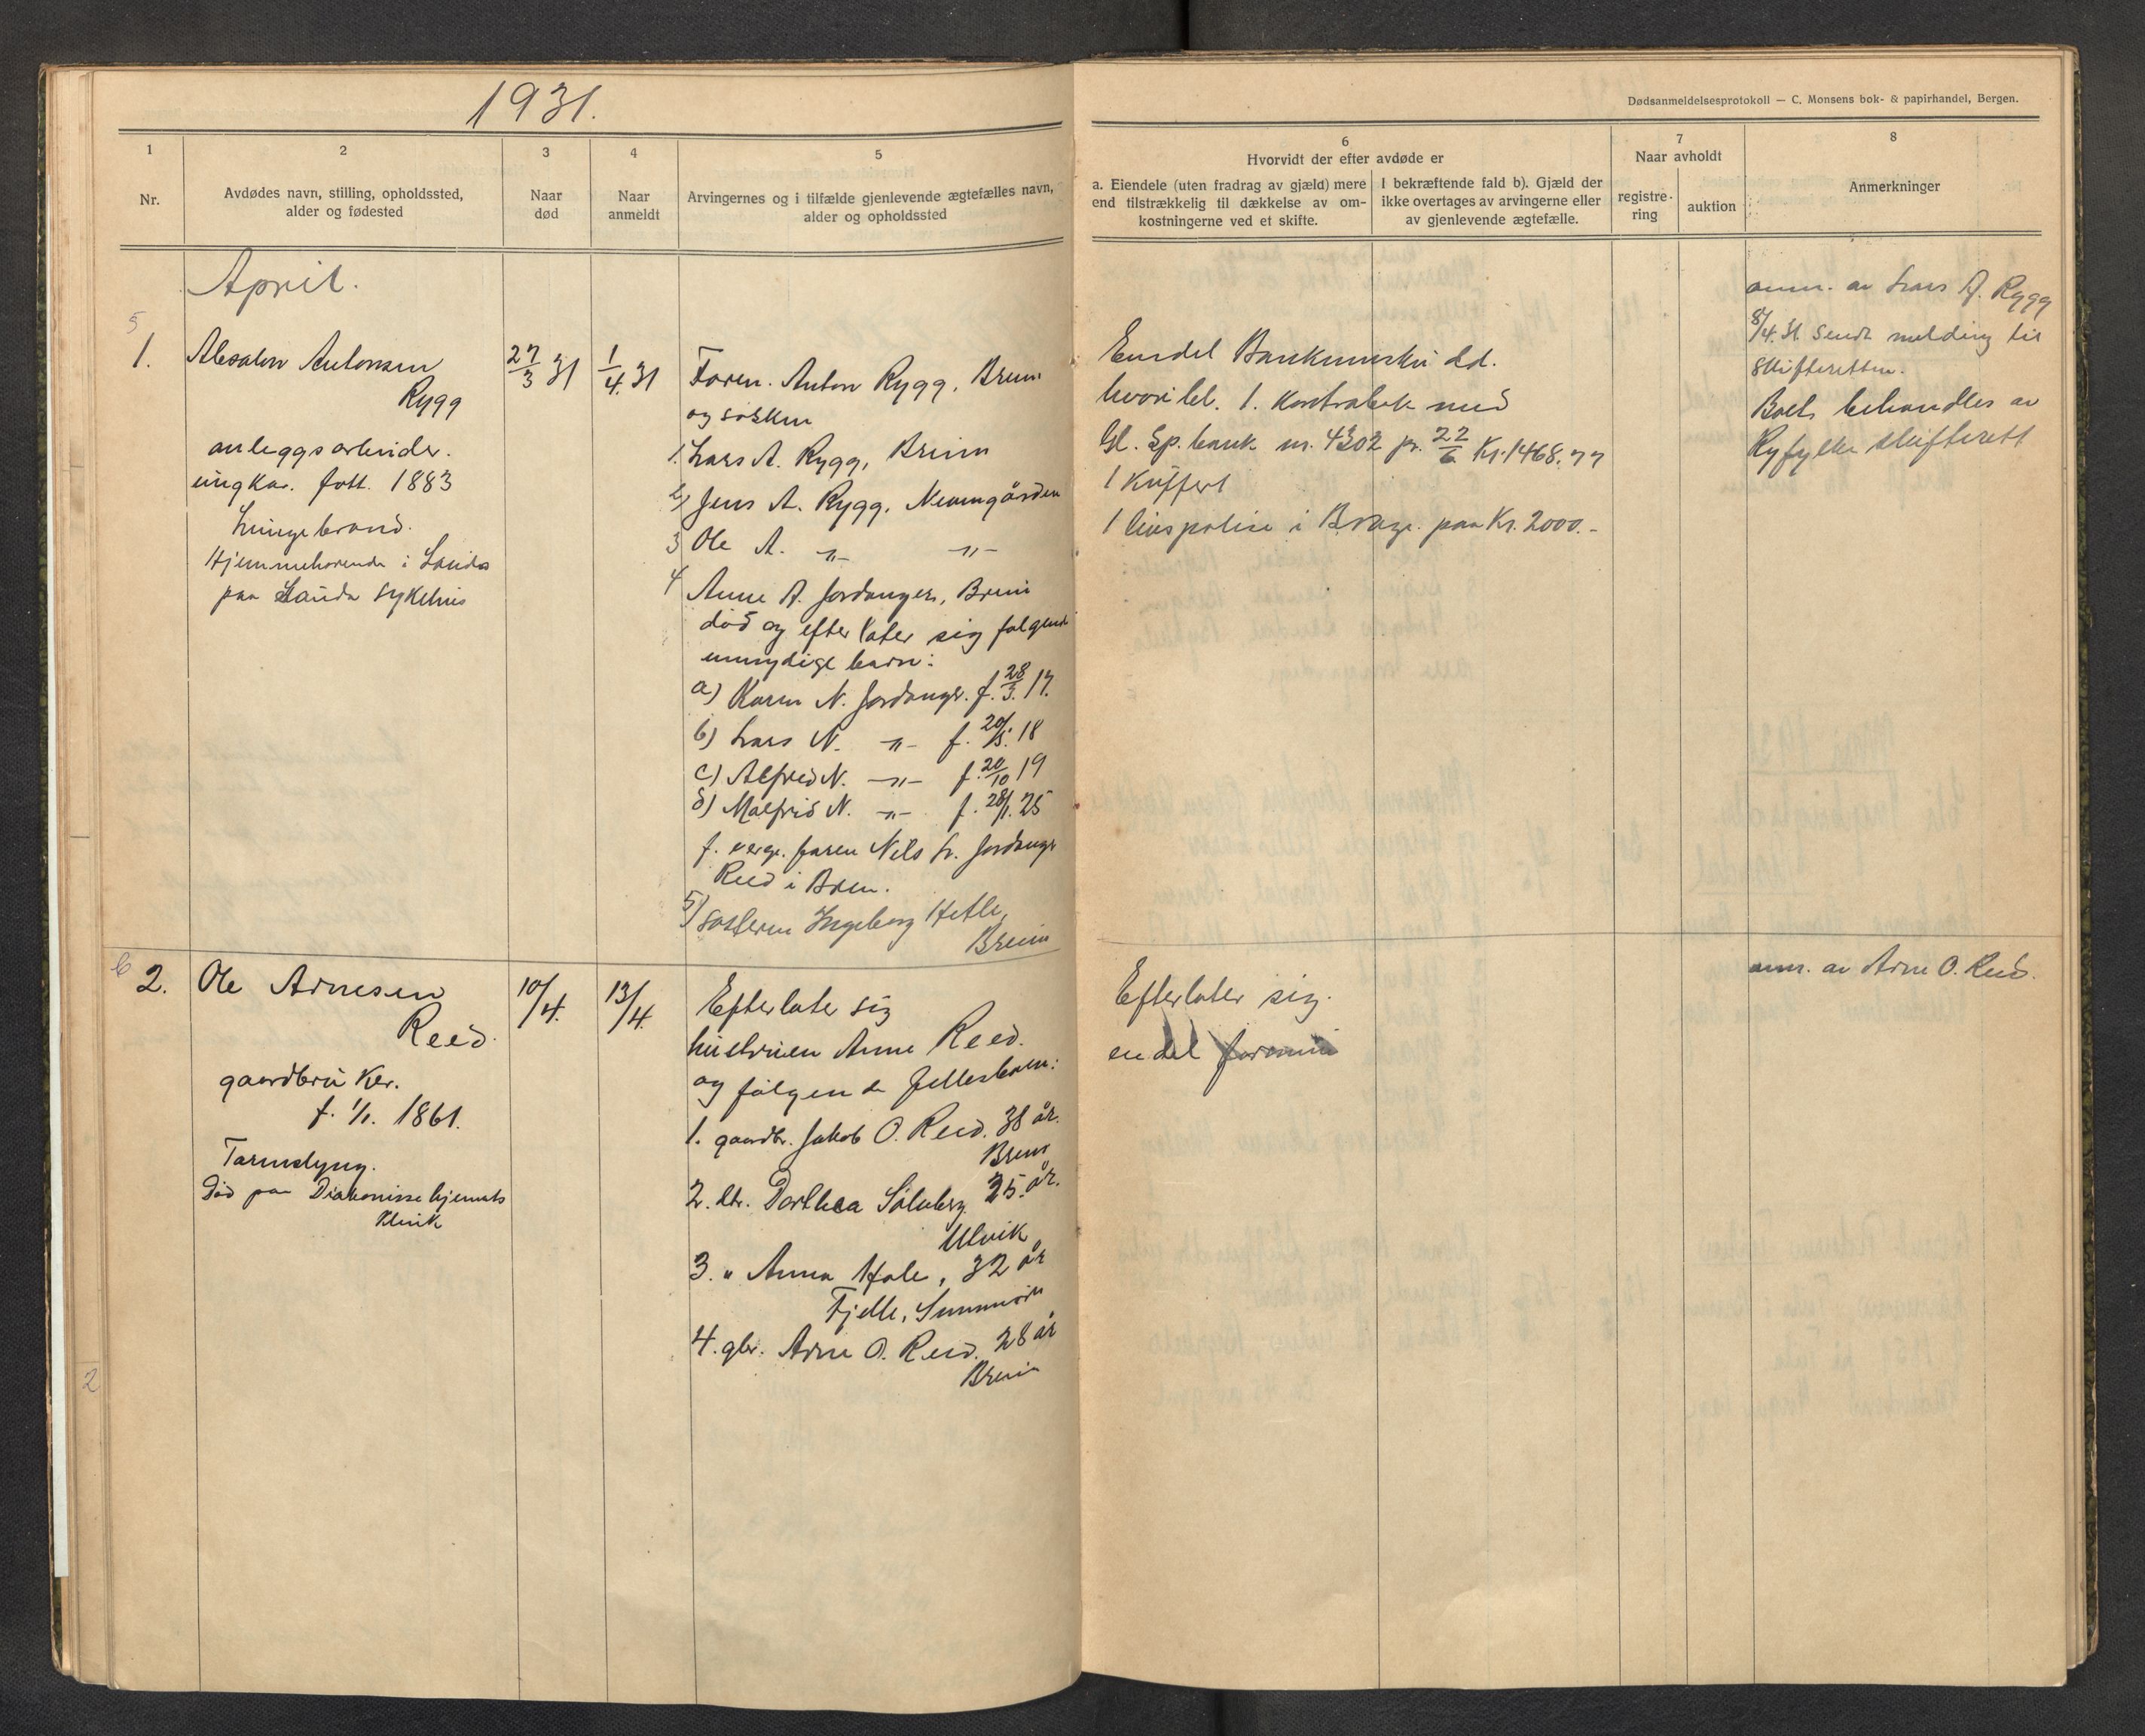 1931.
Dødsanmeldelsesprotokoll — C. Monsens bok- & papirhandel, Bergen.
1
Nr.
2
Avdødes navn, stilling, opholdssted,
alder og fødested
3
Naar
død
4
Naar
anmeldt
5
Arvingernes og i tilfælde gjenlevende ægtefælles navn,
alder og opholdssted
6
Hvorvidt der efter avdøde er
a. Eiendele (uten fradrag av gjæld) mere
end tilstrækkelig til dækkelse av om-
kostningerne ved et skifte.
I bekræftende fald b). Gjæld der
ikke overtages av arvingerne eller
av gjenlevende ægtefælle.
7
Naar avholdt
registre-
ring
auktion
8
Anmerkninger
April.
5
1.
Absalon Antonsen
Rygg
anleggsarbeider.
ungkar. født. 1883
Lungebrand.
Hjemmehørende i Sauda
paa Sauda sykehus
27/3 31
1/4. 31
Faren. Anton Rygg, Breim
og søsken
1. Lars A. Rygg, Breim
2) Jens A. Rygg,
3 Ole A. -"- -"-
4 Anne A. Jordanger, Breim
død og efterlater sig følgende
umyndige barn:
a) Karen N. Jordanger. f. 28/3. 17.
b) Lars N. -"- f. 20/5. 18
c) Alfred N. -"- f. 20/10 19
d) Malfrid N. -"- f. 28/1. 25
f. verge. faren Nils L. Jordanger
Reed i Breim.
5) søsteren Ingeborg Hetle,
Breim
Endel
hvoribl. 1. Kontrabok med
Gl. Sp. bank nr. 4302 pr. 22/6 Kr. 1468,77
1 Kuffert
1 livspolise i Brage. paa Kr. 2000.-
anm. av Lars A. Rygg
8/4. 31 Sendt melding til
Skifteretten.
Boet behandles av
Ryfylke skifterett
6
2.
Ole Arnesen
Reed.
gaardbruker.
f. 1/1. 1861.
Tarmslyng.
Død paa Diakonissehjemmets
Klinik
10/4.
13/4.
Efterlater sig
hustruen Anne Reed.
og følgende fellesbarn:
1. gaardbr. Jakob O. Reed. 38 år.
Breim
2. dtr. Dorthea Solberg 35. år.
Ulvik
3. " Anna Hole, 32 år
Fjelle, Sunnmøre
4. gbr. Arne O. Reed. 28 år
Breim
Efterlater sig.
en del formue
anm. av Arne O. Reed.
2